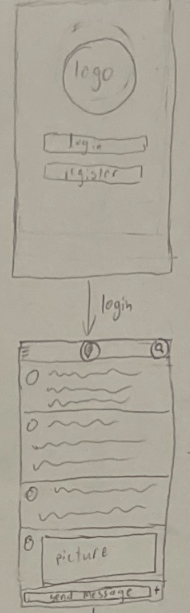 logo
login
register
login
picture
send message +